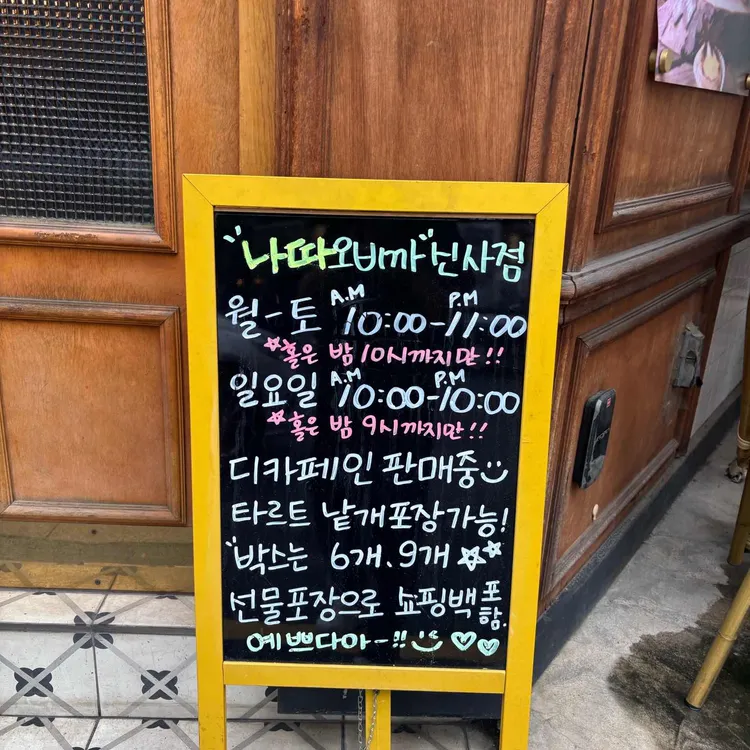 "나따오비까" 신사점
월-토 A.M 10:00-P.M 11:00
*홀은 밤 10시까지만!!
일요일 A.M 10:00-P.M 10:00
*홀은 밤 9시까지만!!
디카페인 판매중
타르트 낱개포장가능!
"박스는 6개, 9개
선물포장으로 쇼핑백포함.
예쁘다아-!!